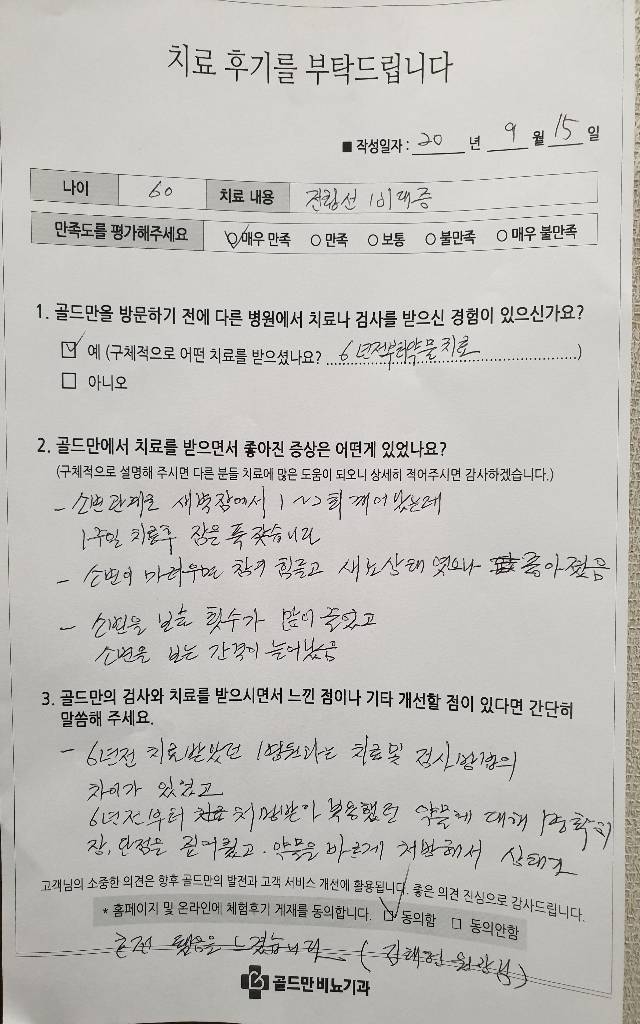 치료 후기를 부탁드립니다
■ 작성일자 : 20 년 9 월 15 일
나이 60 치료 내용 전립선 비대증
만족도를 평가해주세요 매우 만족 만족 보통 불만족 매우 불만족
1. 골드만을 방문하기 전에 다른 병원에서 치료나 검사를 받으신 경험이 있으신가요?
예 (구체적으로 어떤 치료를 받으셨나요? 6년전부터 약물치료)
아니오
2. 골드만에서 치료를 받으면서 좋아진 증상은 어떤게 있었나요?
(구체적으로 설명해 주시면 다른 분들 치료에 많은 도움이 되오니 상세히 적어주시면 감사하겠습니다.)
- 소변관계로 새벽잠에서 1~2회 깨어 났는데
1주일 치료후 잠을 푹 잤습니다
- 소변이 마려우면 참기 힘들고 새는상태 였으나 좋아졌음
- 소변을 보는 횟수가 많이 줄었고
소변을 보는 간격이 늘어났음
3. 골드만의 검사와 치료를 받으시면서 느낀 점이나 기타 개선할 점이 있다면 간단히
말씀해 주세요.
- 6년전 치료받았던 병원과는 치료 및 검사방법의
차이가 있었고
6년전부터 처방받아 복용했던 약물에 대해 명확히
장, 단점을 짚어줬고. 약물을 바르게 처방해서 상태가
고객님의 소중한 의견은 향후 골드만의 발전과 고객 서비스 개선에 활용됩니다. 좋은 의견 진심으로 감사드립니다.
* 홈페이지 및 온라인에 체험후기 게재를 동의합니다. 동의함 동의안함
호전 됐음을 느꼈습니다. (김태헌 원장님)
골드만비뇨기과